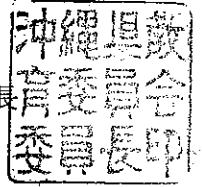 沖繩県教
育委員会
委員長印
長